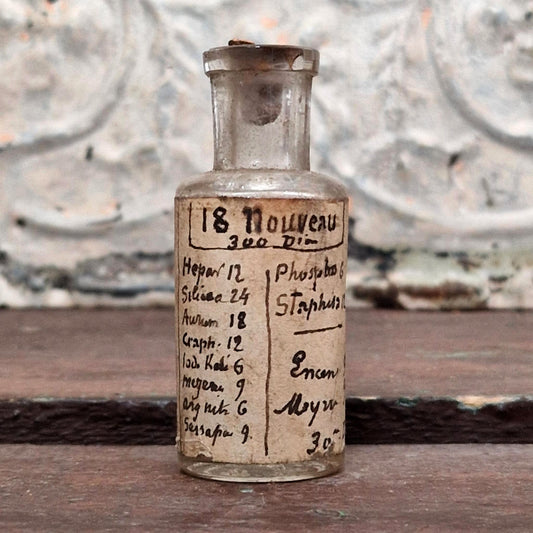 18 Nouveau
300 Dia
Hepar 12
Silicea 24
Aurum 18
Graph. 12
Iod. Kali 6
mezereu 9
arg nit. 6
Sassapa 9.
Phosphor 6
Staphis
Encen
Myrr
30